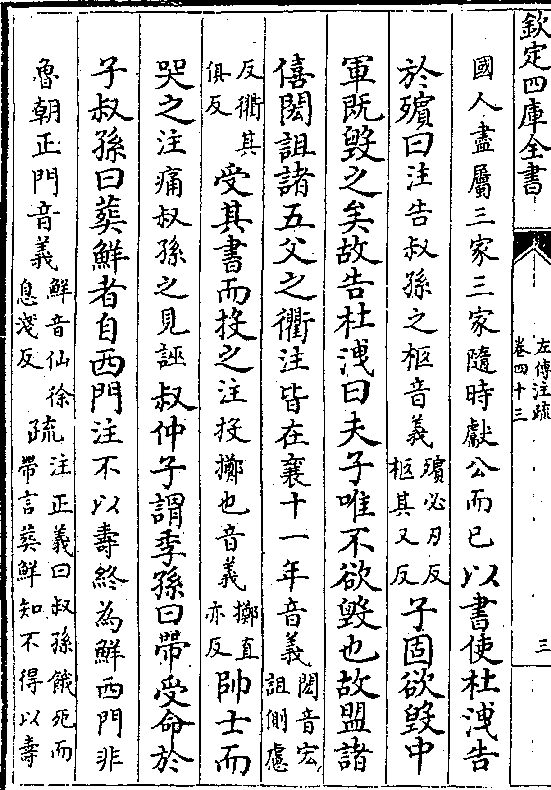 欽定四庫全書
左傳注疏
卷四十三
三
國人盡屬三家三家隨時獻公而已以書使杜洩告
於殯曰注告叔孫之柩音義殯必刃反
柩其又反子固欲毀中
軍既毀之矣故告杜洩曰夫子唯不欲毀也故盟諸
僖閎詛諸五父之衢注皆在襄十一年音義閎音宏
詛側慮
反衢其
俱反受其書而投之注投擲也音義擲直
亦反帥士而
哭之注痛叔孫之見誣叔仲子謂季孫曰帶受命於
子叔孫曰葬鮮者自西門注不以壽終為鮮西門非
魯朝正門音義鮮音仙徐
息淺反疏注正義曰叔孫餓死而
帶言葬鮮知不得以壽